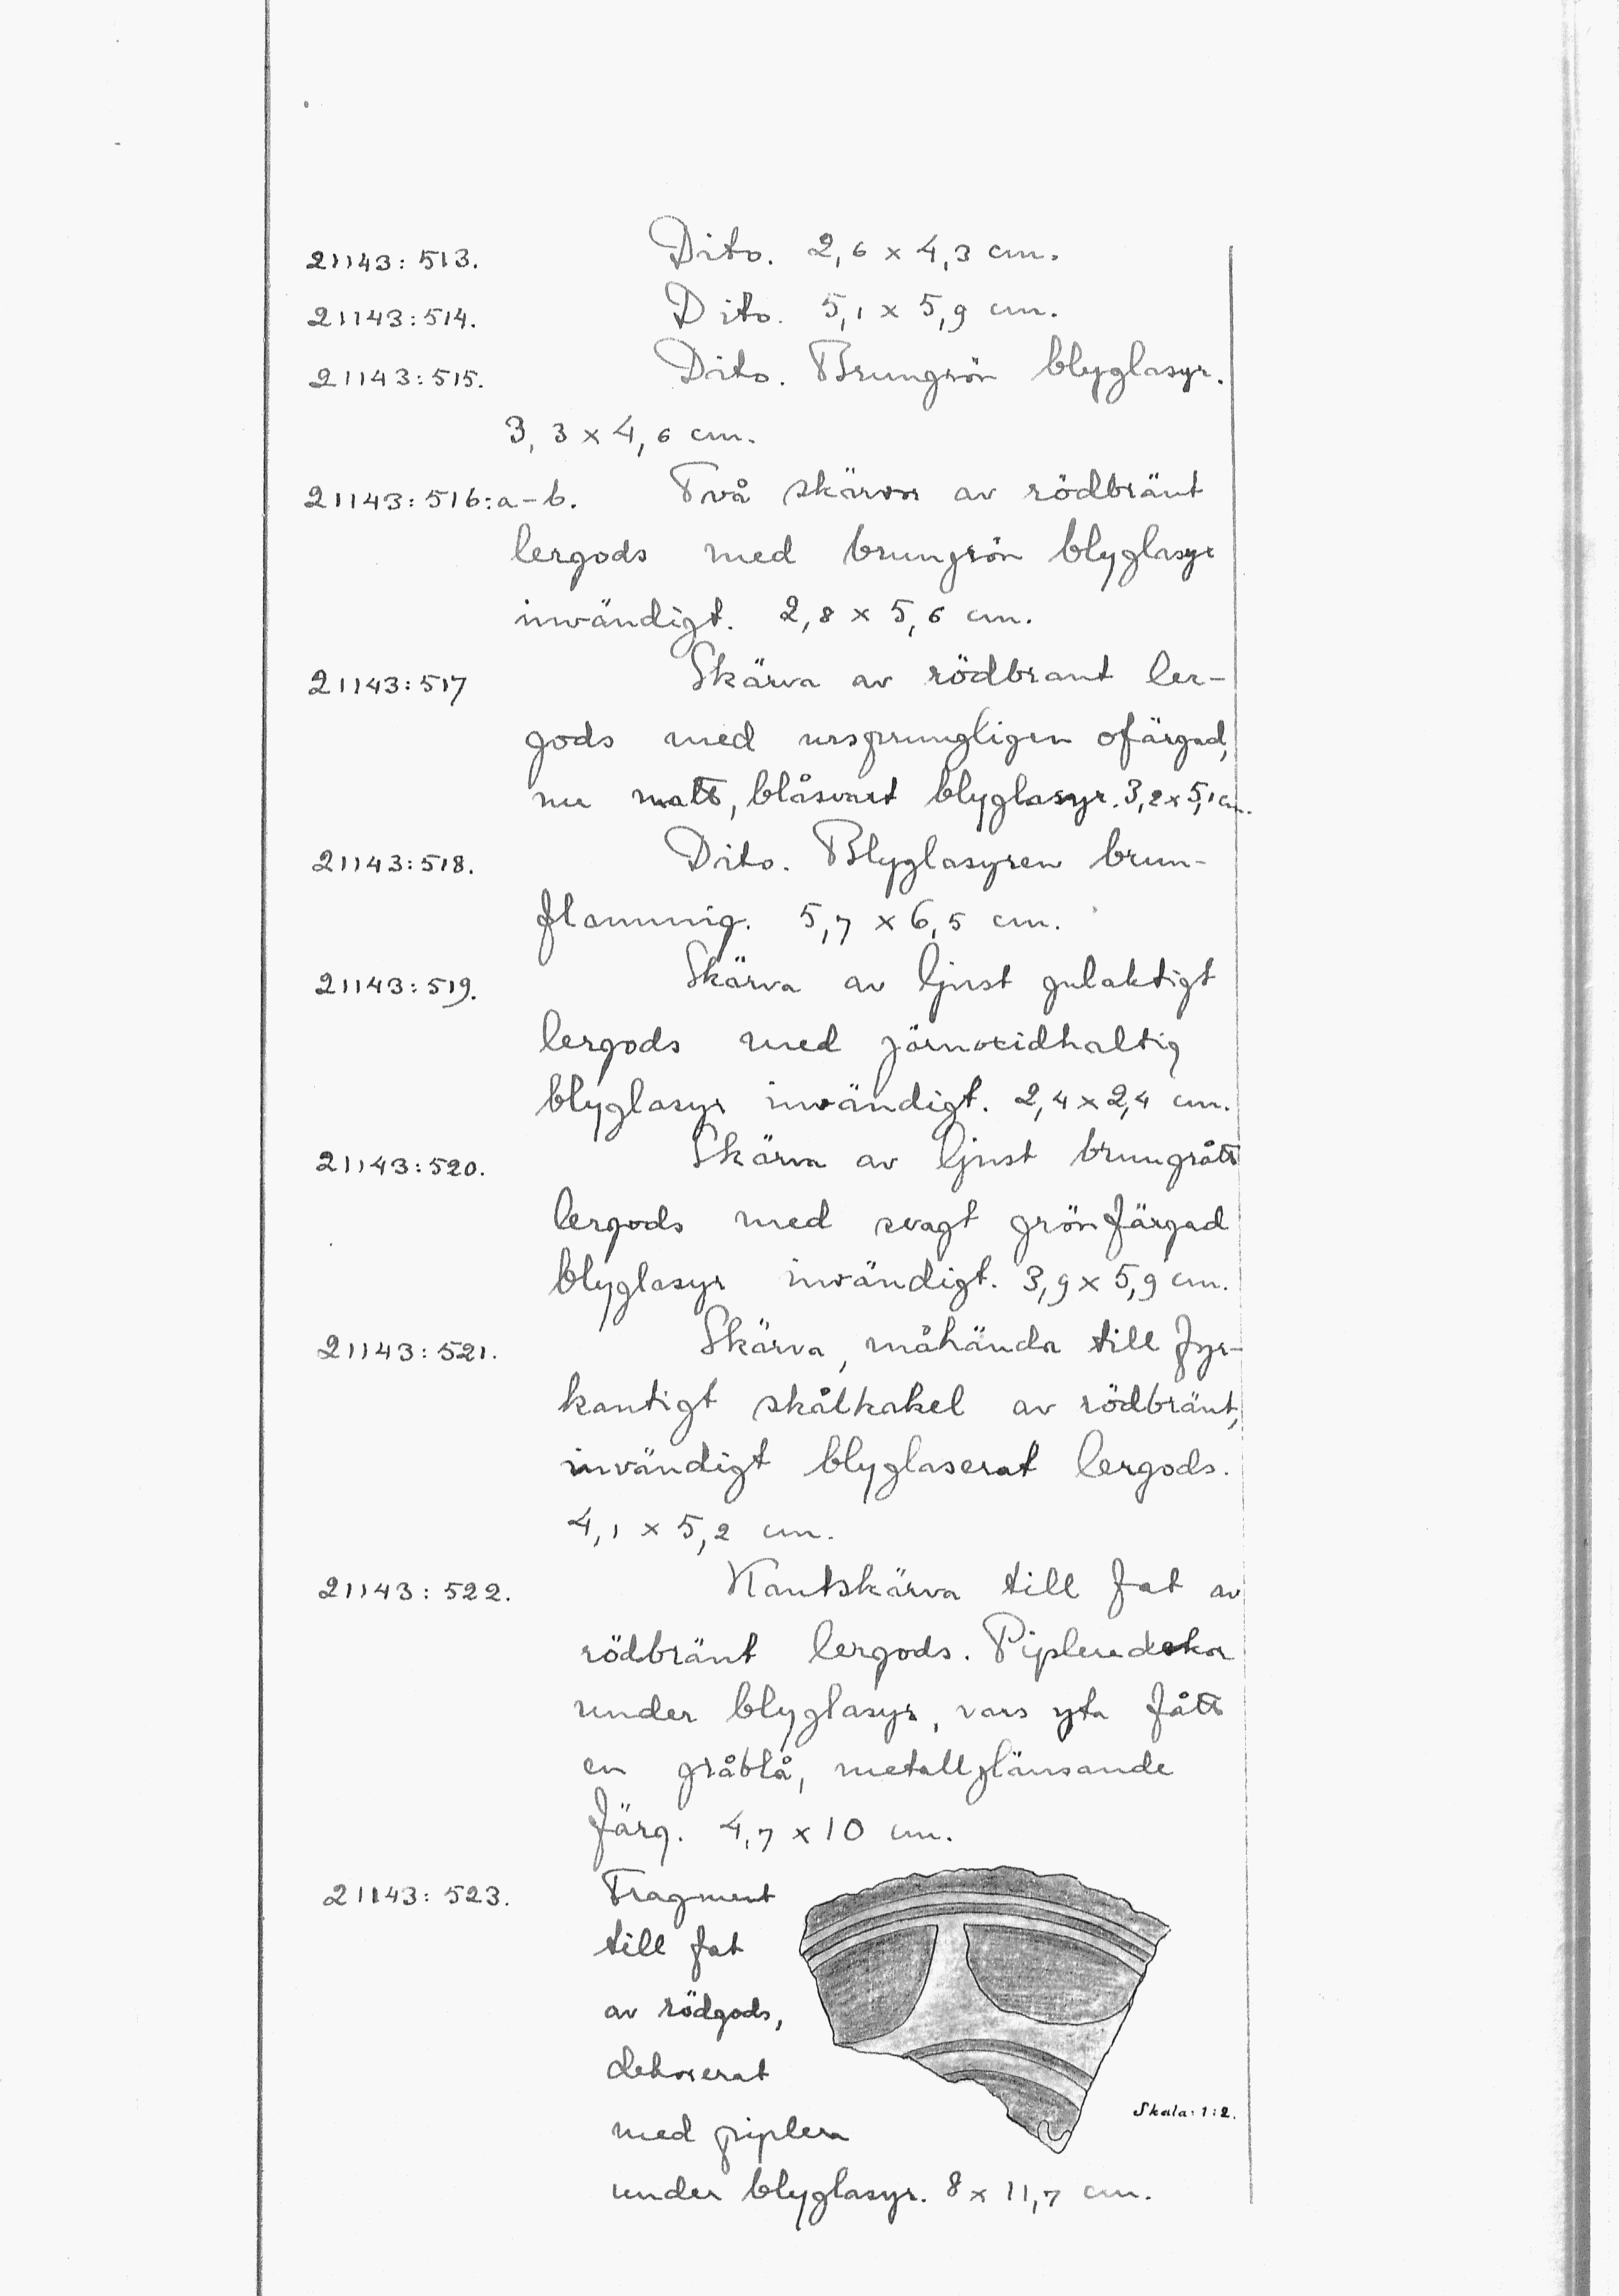 21143:513. Dito. 2,6 x 4,3 cm.
21143:514. Dito. 5,1 x 5,9 cm.
21143:515. Dito. Brungrön blyglasyr.
3,3 x 4,6 cm.
21143:516:a-b. Två skärvor av rödbränt
lergods med brungrön blyglasyr
invändigt. 2,8 x 5,6 cm.
21143:517 Skärva av rödbrant ler-
gods med ursprungligen ofärgad,
nu matt, blåsvart blyglasyr. 3,2 x 5,1 cm.
21143:518. Dito. Blyglasyren brun-
flammig. 5,7 x 6,5 cm.
21143:519. Skärva av ljust gulaktigt
lergods med järnoxidhaltig
blyglasyr invändigt. 2,4 x 2,4 cm.
21143:520. Skärva av ljust brungrått
lergods med svagt grönfärgad
blyglasyr invändigt. 3,9 x 5,9 cm.
21143:521. Skärva, måhända till fyr-
kantigt skålkakel av rödbränt,
invändigt blyglaserat lergods.
4,1 x 5,2 cm.
21143:522. Kantskärva till fat av
rödbränt lergods. Pipleredekor
under blyglasyr, vars yta fått
en gråblå, metallglänsande
färg. 4,7 x 10 cm.
21143:523. Fragment
till fat
av rödgods,
dekorerat
med piplera
under blyglasyr. 8 x 11,7 cm.
Skala: 1:2.